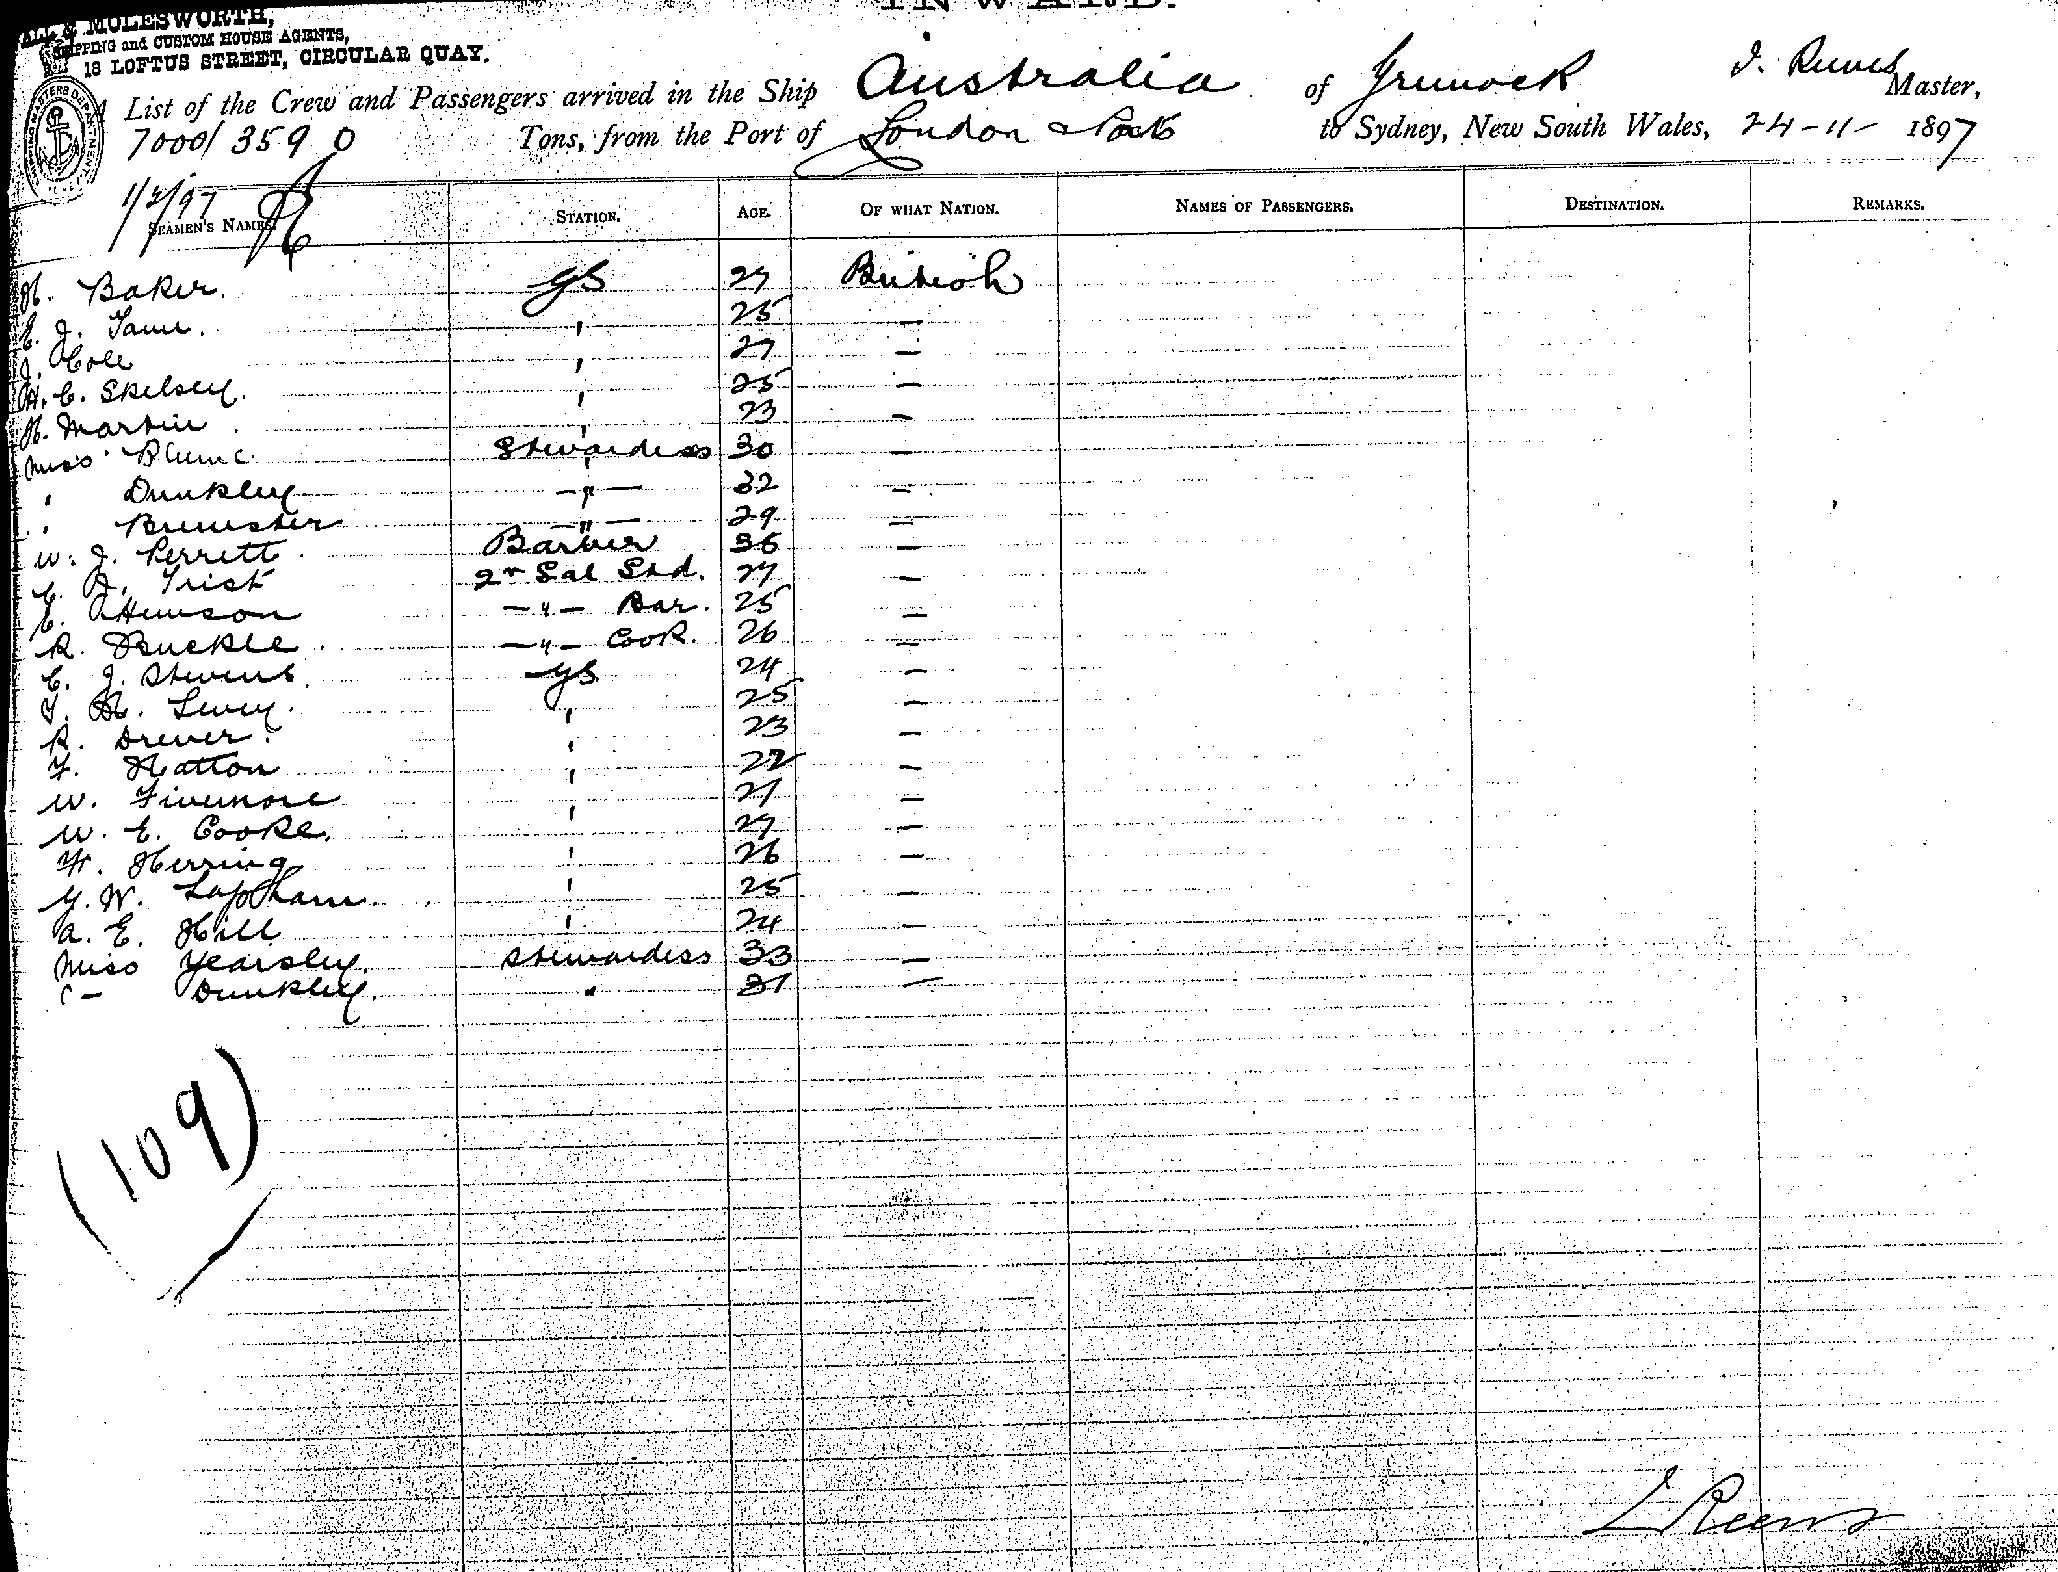 INWARD.
ALL & MOLESWORTH,
SHIPPING and CUSTOM HOUSE AGENTS,
18 LOFTUS STREET, CIRCULAR QUAY.
List of the Crew and Passengers arrived in the Ship Australia of Greenock Master,
7000/3590 Tons, from the Port of London & Ports to Sydney, New South Wales, 24-11- 1897
1/2/97
SEAMEN'S NAMES. STATION. AGE. OF WHAT NATION. NAMES OF PASSENGERS. DESTINATION. REMARKS.
H. Baker. GS 27 British
E. J. Tame. " 25 —
J. Cole " 27 —
H. C. Skelsey. " 25 —
H. Martin " 23 —
Miss Blume. Stewardess 30 —
" Dunkley —"— 32 —
" Brewster —"— 29 —
W. J. Perrett. Barber 36 —
C. A. Trist 2nd Sal Std. 27 —
E. Hewson —"— Bar. 25 —
R. Buckle —"— Cook. 26 —
C. J. Stevens. GS 24 —
T. H. Levey. " 25 —
R. Drever. " 23 —
F. Hatton " 22 —
W. Finemore " 21 —
W. E. Cooke. " 27 —
W. Herring " 26 —
G. W. Lapham. " 25 —
A. E. Hill " 24 —
Miss Yearsley. Stewardess 33 —
"— Dunkley. " 31 —
(109)